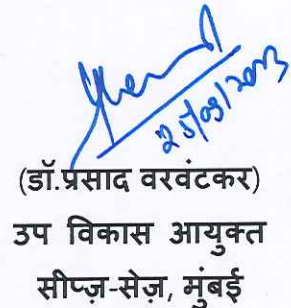 25/09/2023
(डॉ.प्रसाद वरवंटकर)
उप विकास आयुक्त
सीप्ज़-सेज़, मुंबई